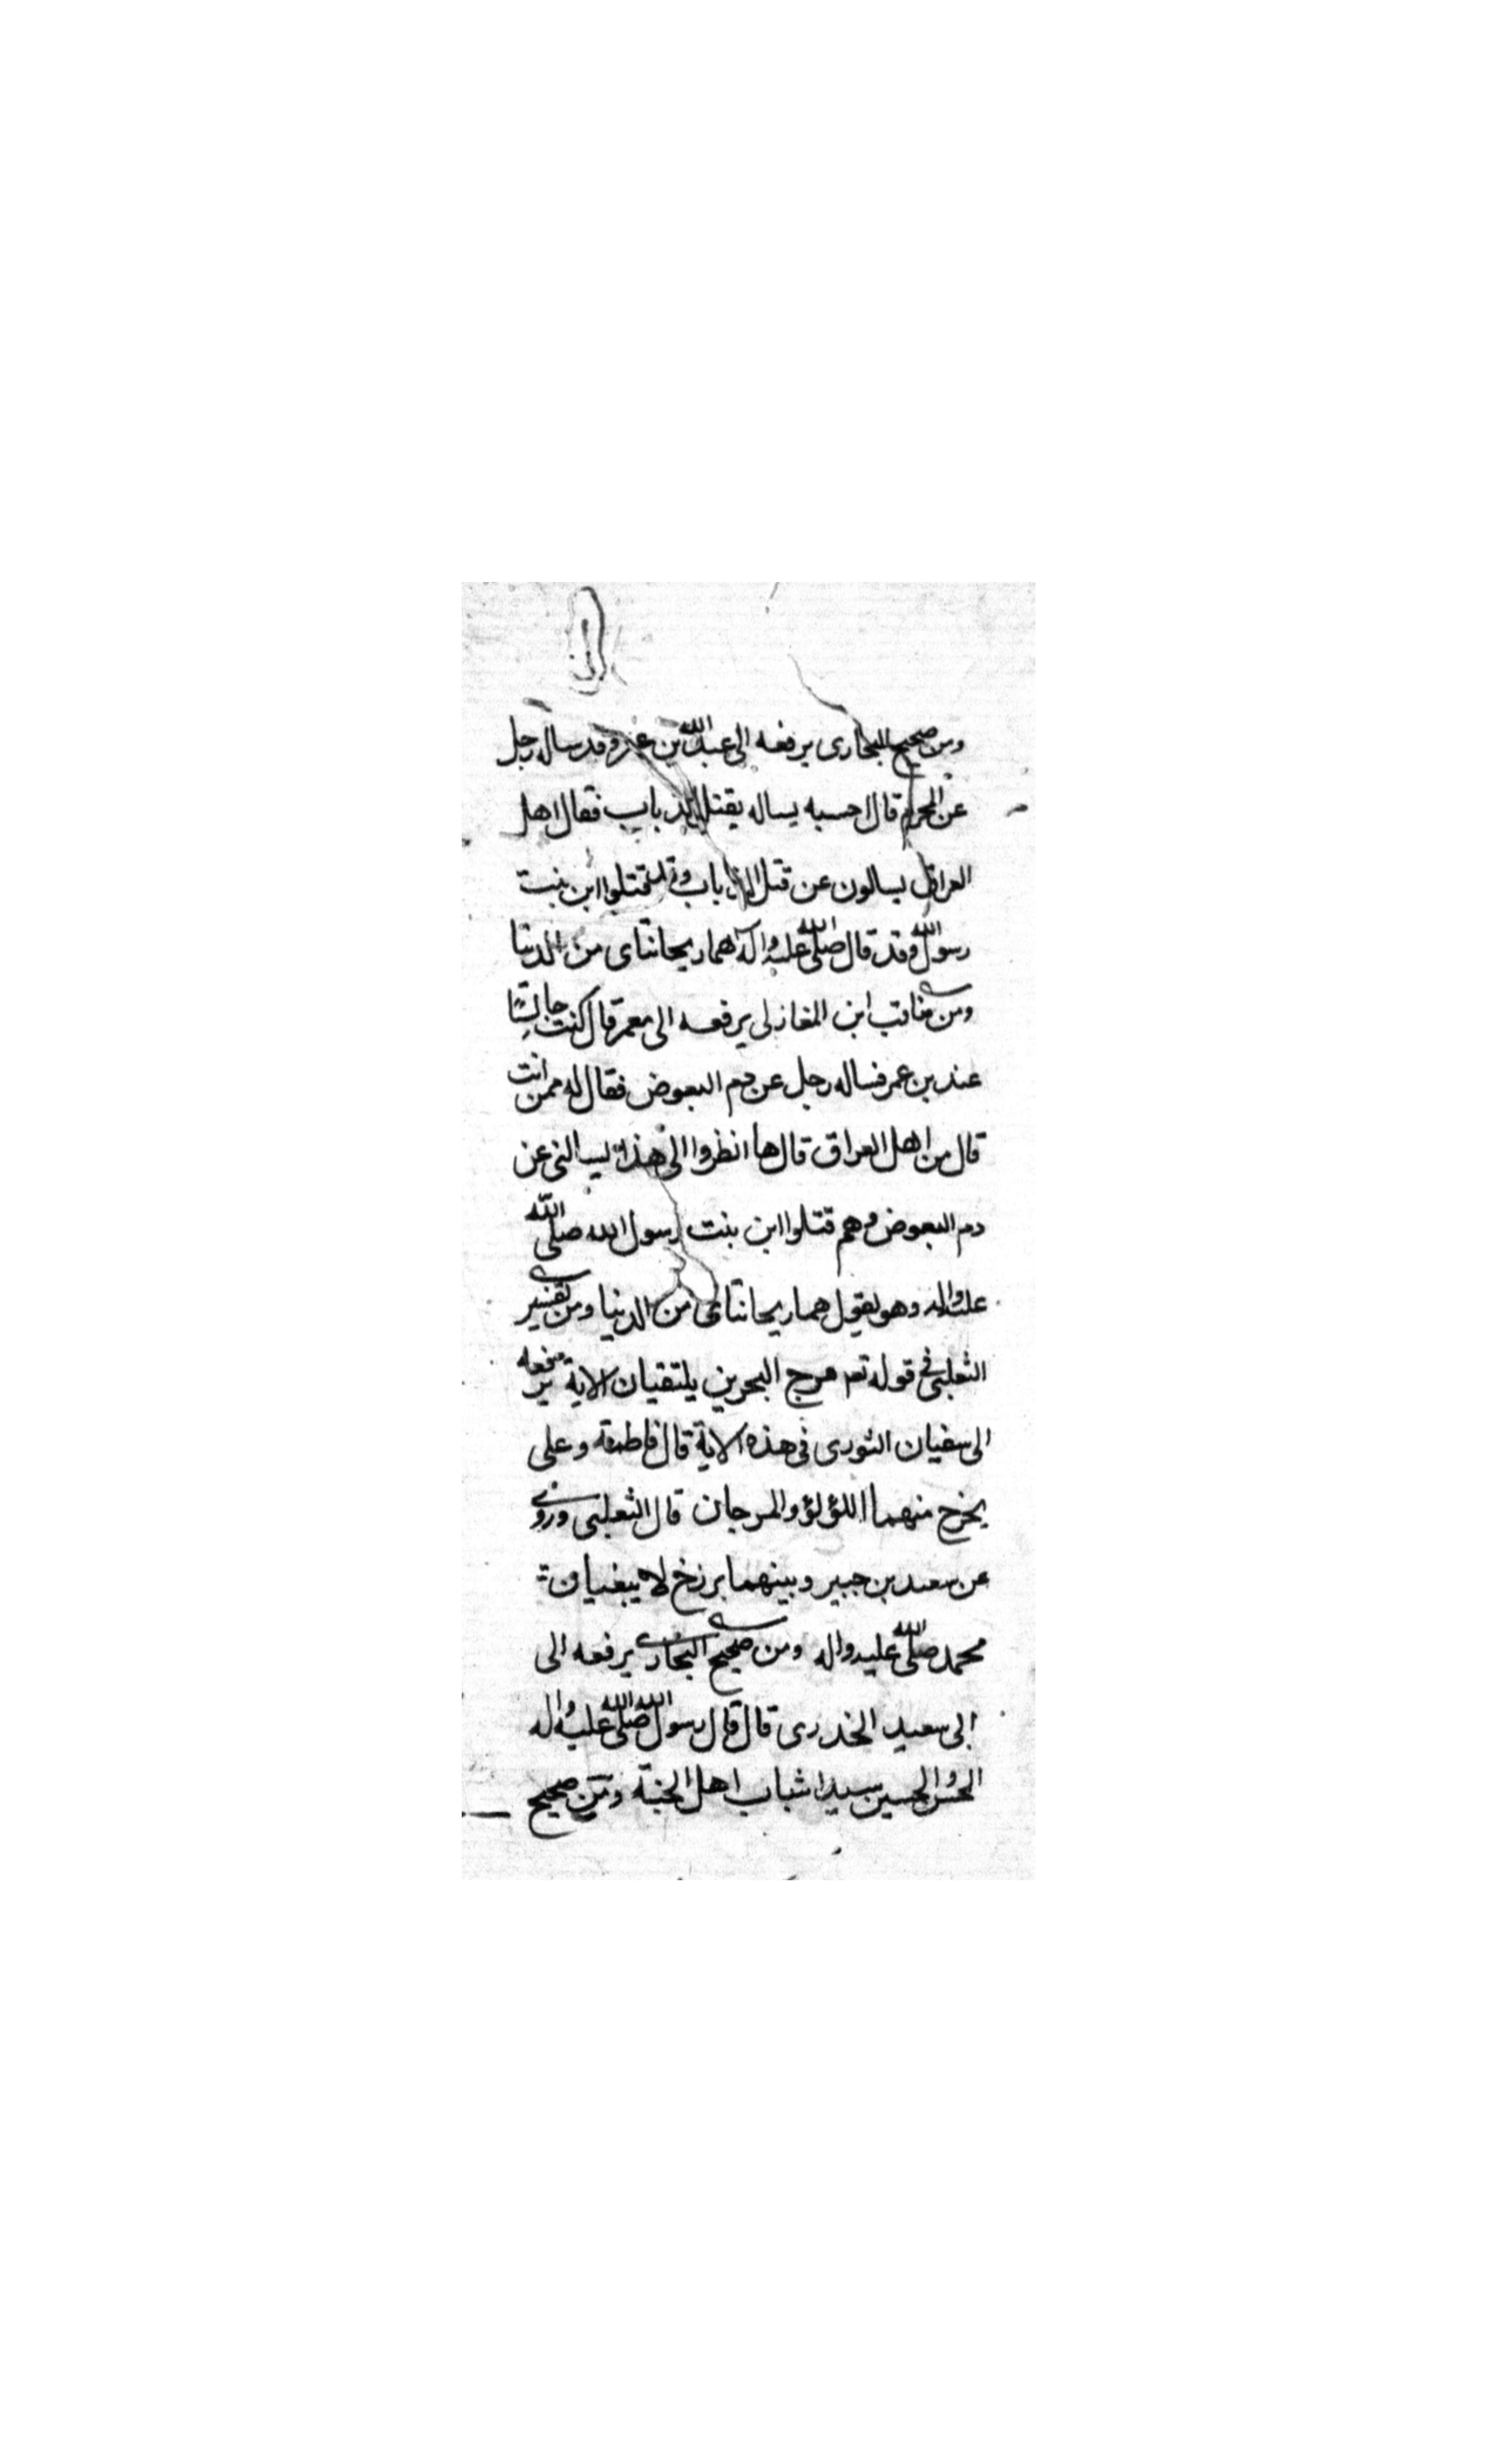 ومن صحيح البخارى يرفعه الى عبد الله بن عمر وقد ساله رجل
عن المحرم قال احسبه يساله يقتل الذباب فقال اهل
العراق يسالون عن قتل الذباب وقد قتلوا ابن بنت
رسول الله وقد قال صلى الله عليه واله هما ريحانتاى من الدنيا
ومن مناقب ابن المغازلى يرفعه الى معمر قال كنت جالسًا
عند بن عمر فساله رجل عن دم البعوض فقال له ممن انت
قال من اهل العراق قال ها انظروا الى هذا يسالنى عن
دم البعوض وهم قتلوا ابن بنت رسول الله صلى الله
عليه واله وهو يقول هما ريحانتاى من الدنيا ومن تفسير
الثعلبى فى قوله تعم مرج البحرين يلتقيان الاية يرفعه
الى سفيان الثورى فى هذه الاية قال فاطمة وعلى
يخرج منهما اللؤلؤ والمرجان قال الثعلبى وروى
عن سعيد بن جبير وبينهما برزخ لا يبغيان
محمد صلى الله عليه واله ومن صحيح البخارى يرفعه الى
ابى سعيد الخدرى قال قال رسول الله صلى الله عليه واله
الحسن والحسين سيدا شباب اهل الجنة ومن صحيح